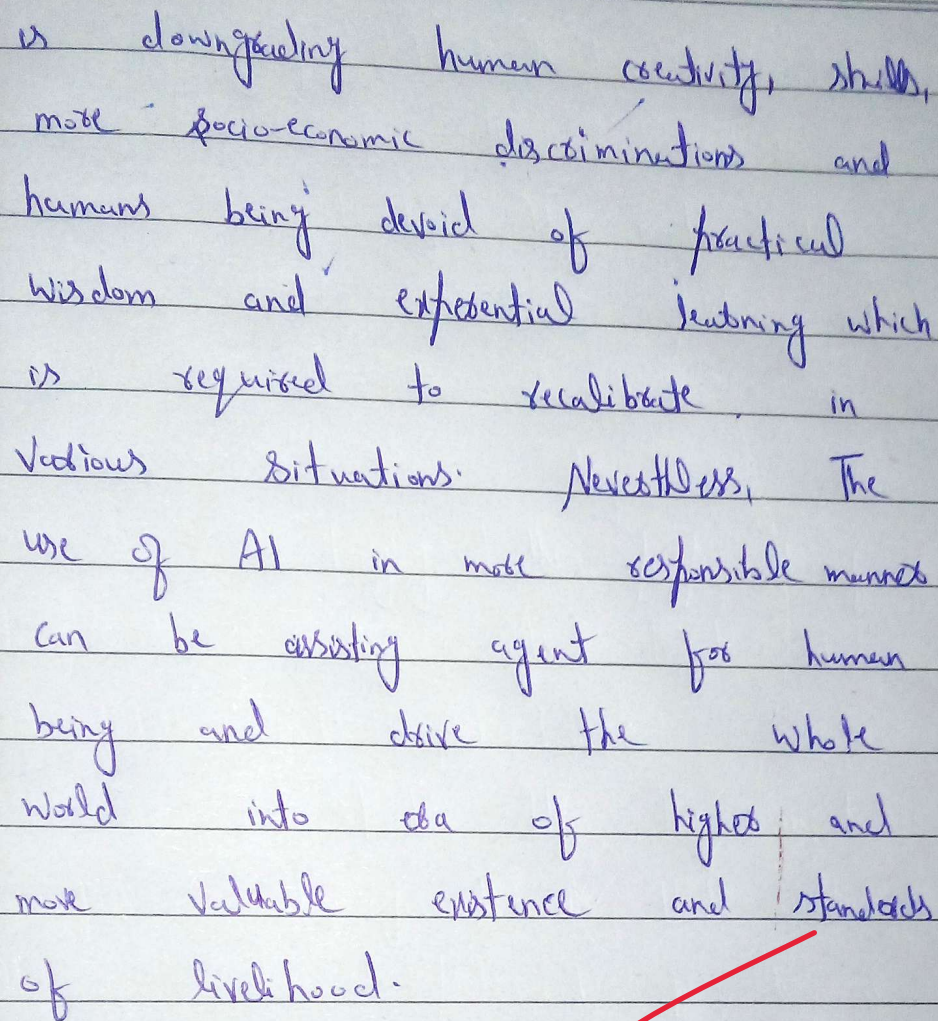 is downgrading human creativity, skills,
more socio-economic discriminations and
humans being devoid of practical
wisdom and experential learning which
is required to recalibrate in
various situations. Neverthless, The
use of AI in more responsible manner
can be assisting agent for human
being and drive the whole
world into era of higher and
more valuable existence and standards
of livelihood.